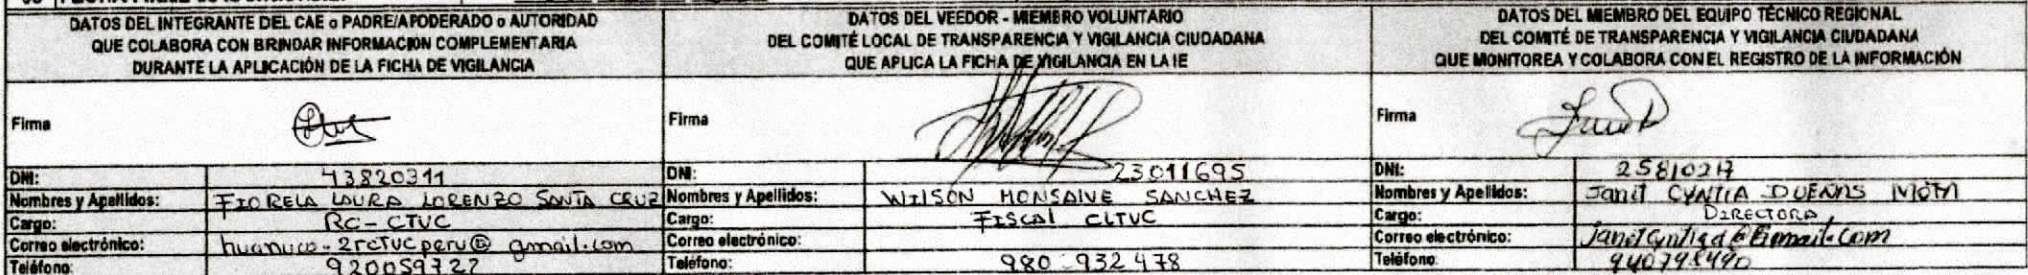 DATOS DEL INTEGRANTE DEL CAE o PADRE/APODERADO o AUTORIDAD
QUE COLABORA CON BRINDAR INFORMACION COMPLEMENTARIA
DURANTE LA APLICACIÓN DE LA FICHA DE VIGILANCIA
Firma
DNI: 43820311
Nombres y Apellidos: FIORELA LAURA LORENZO SANTA CRUZ
Cargo: RC-CTVC
Correo electrónico: huanuco-2rctvcperu@gmail.com
Teléfono: 920059722
DATOS DEL VEEDOR - MIEMBRO VOLUNTARIO
DEL COMITÉ LOCAL DE TRANSPARENCIA Y VIGILANCIA CIUDADANA
QUE APLICA LA FICHA DE VIGILANCIA EN LA IE
Firma
DNI: 23011695
Nombres y Apellidos: WILSON MONSALVE SANCHEZ
Cargo: FISCAL CLTVC
Correo electrónico:
Teléfono: 980-932478
DATOS DEL MIEMBRO DEL EQUIPO TÉCNICO REGIONAL
DEL COMITÉ DE TRANSPARENCIA Y VIGILANCIA CIUDADANA
QUE MONITOREA Y COLABORA CON EL REGISTRO DE LA INFORMACIÓN
Firma
DNI:
Nombres y Apellidos: Janit CYNTIA DUEÑAS
Cargo: DIRECTORA
Correo electrónico:
Teléfono: